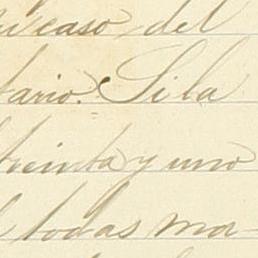 caso del
tario. Si la
treinta y uno
todas ma-